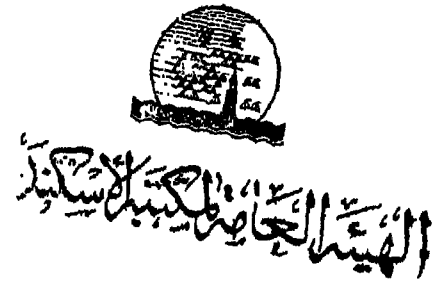 الهيئة العامة لمكتبة الإسكندرية